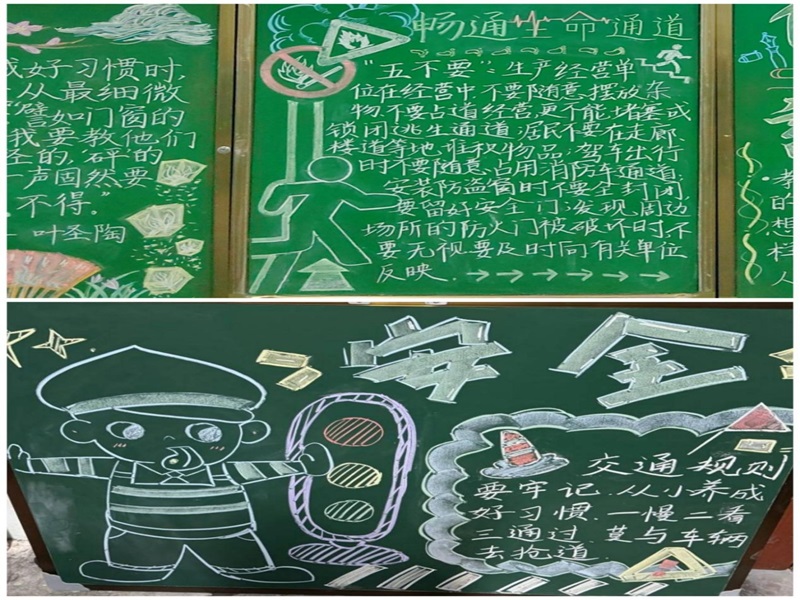 成好习惯时,
从最细微
譬如门窗的
我要教他们
的,砰的
一声固然要
不得。”
叶圣陶
畅通生命通道
“五不要”:生产经营单
位在经营中不要随意摆放杂
物,不要占道经营,更不能堵塞或
锁闭逃生通道;居民不要在走廊
楼道等地堆积物品;驾车出行
时不要随意占用消防车通道;
安装防盗窗时不要全封闭,
要留好安全门;发现周边
场所的防火门被破坏时,不
要无视要及时向有关单位
反映
教
的
想
样
安全
交通规则
要牢记.从小养成
好习惯.一慢二看
三通过.莫与车辆
去抢道.